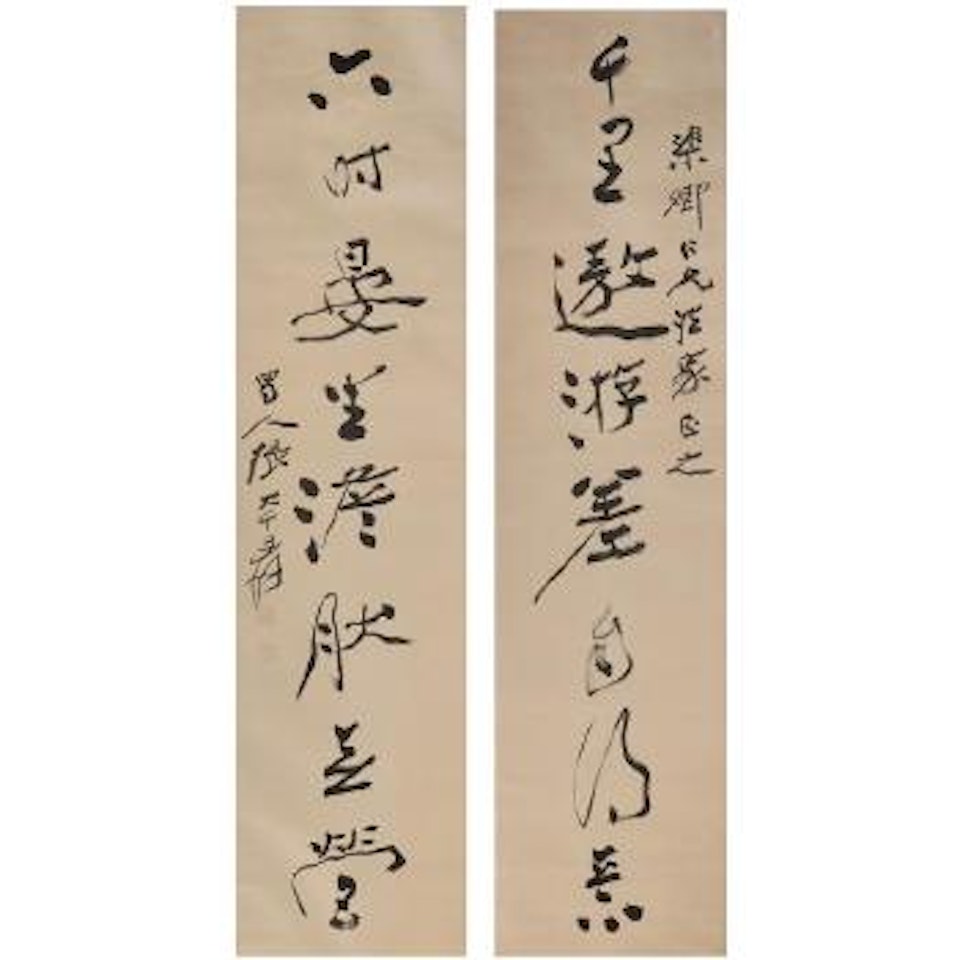 梁卿仁兄法家正之
千里遨游差自得意
六时晏坐澹肰無營
蜀人張大千爰